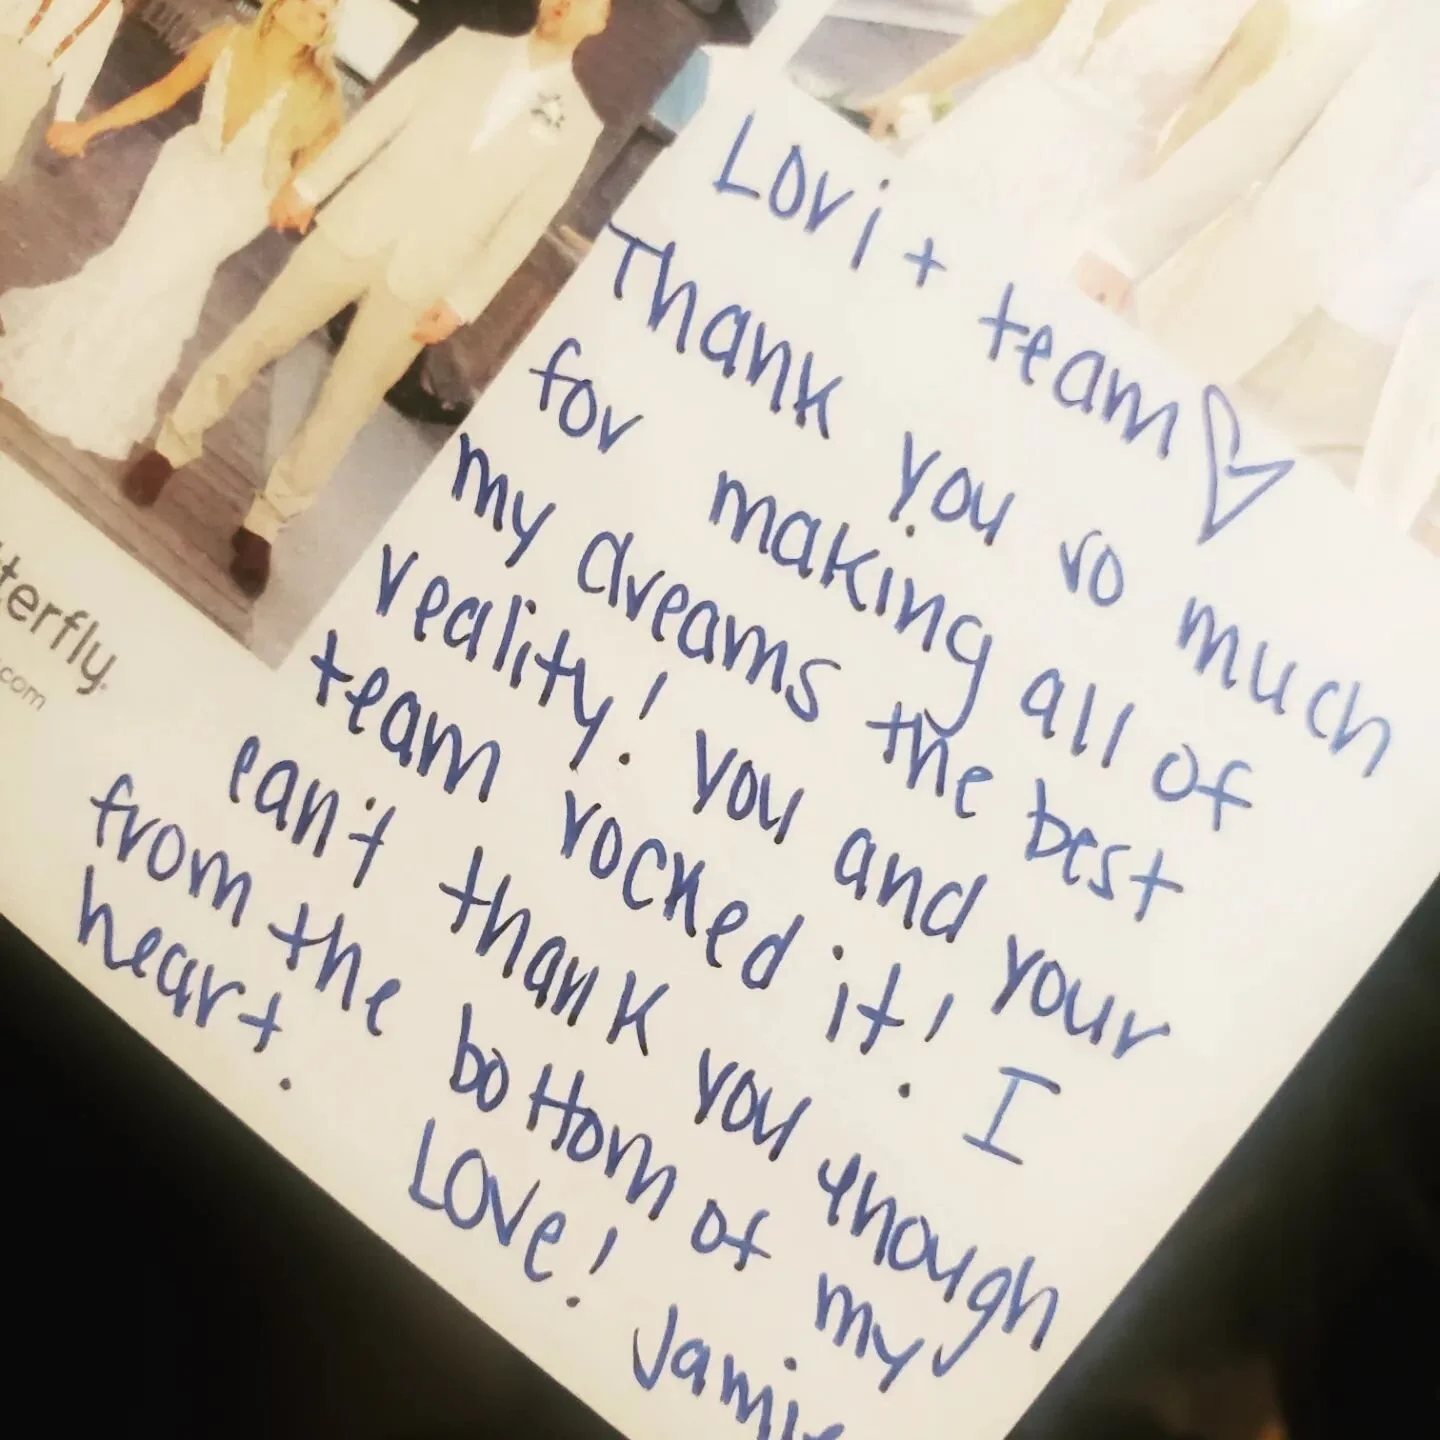 Lori + team
Thank you so much
for making all of
my dreams the best
reality! You and your
team rocked it! I
can't thank you enough
from the bottom of my
heart.
Love! Jamie
terfly.
.com